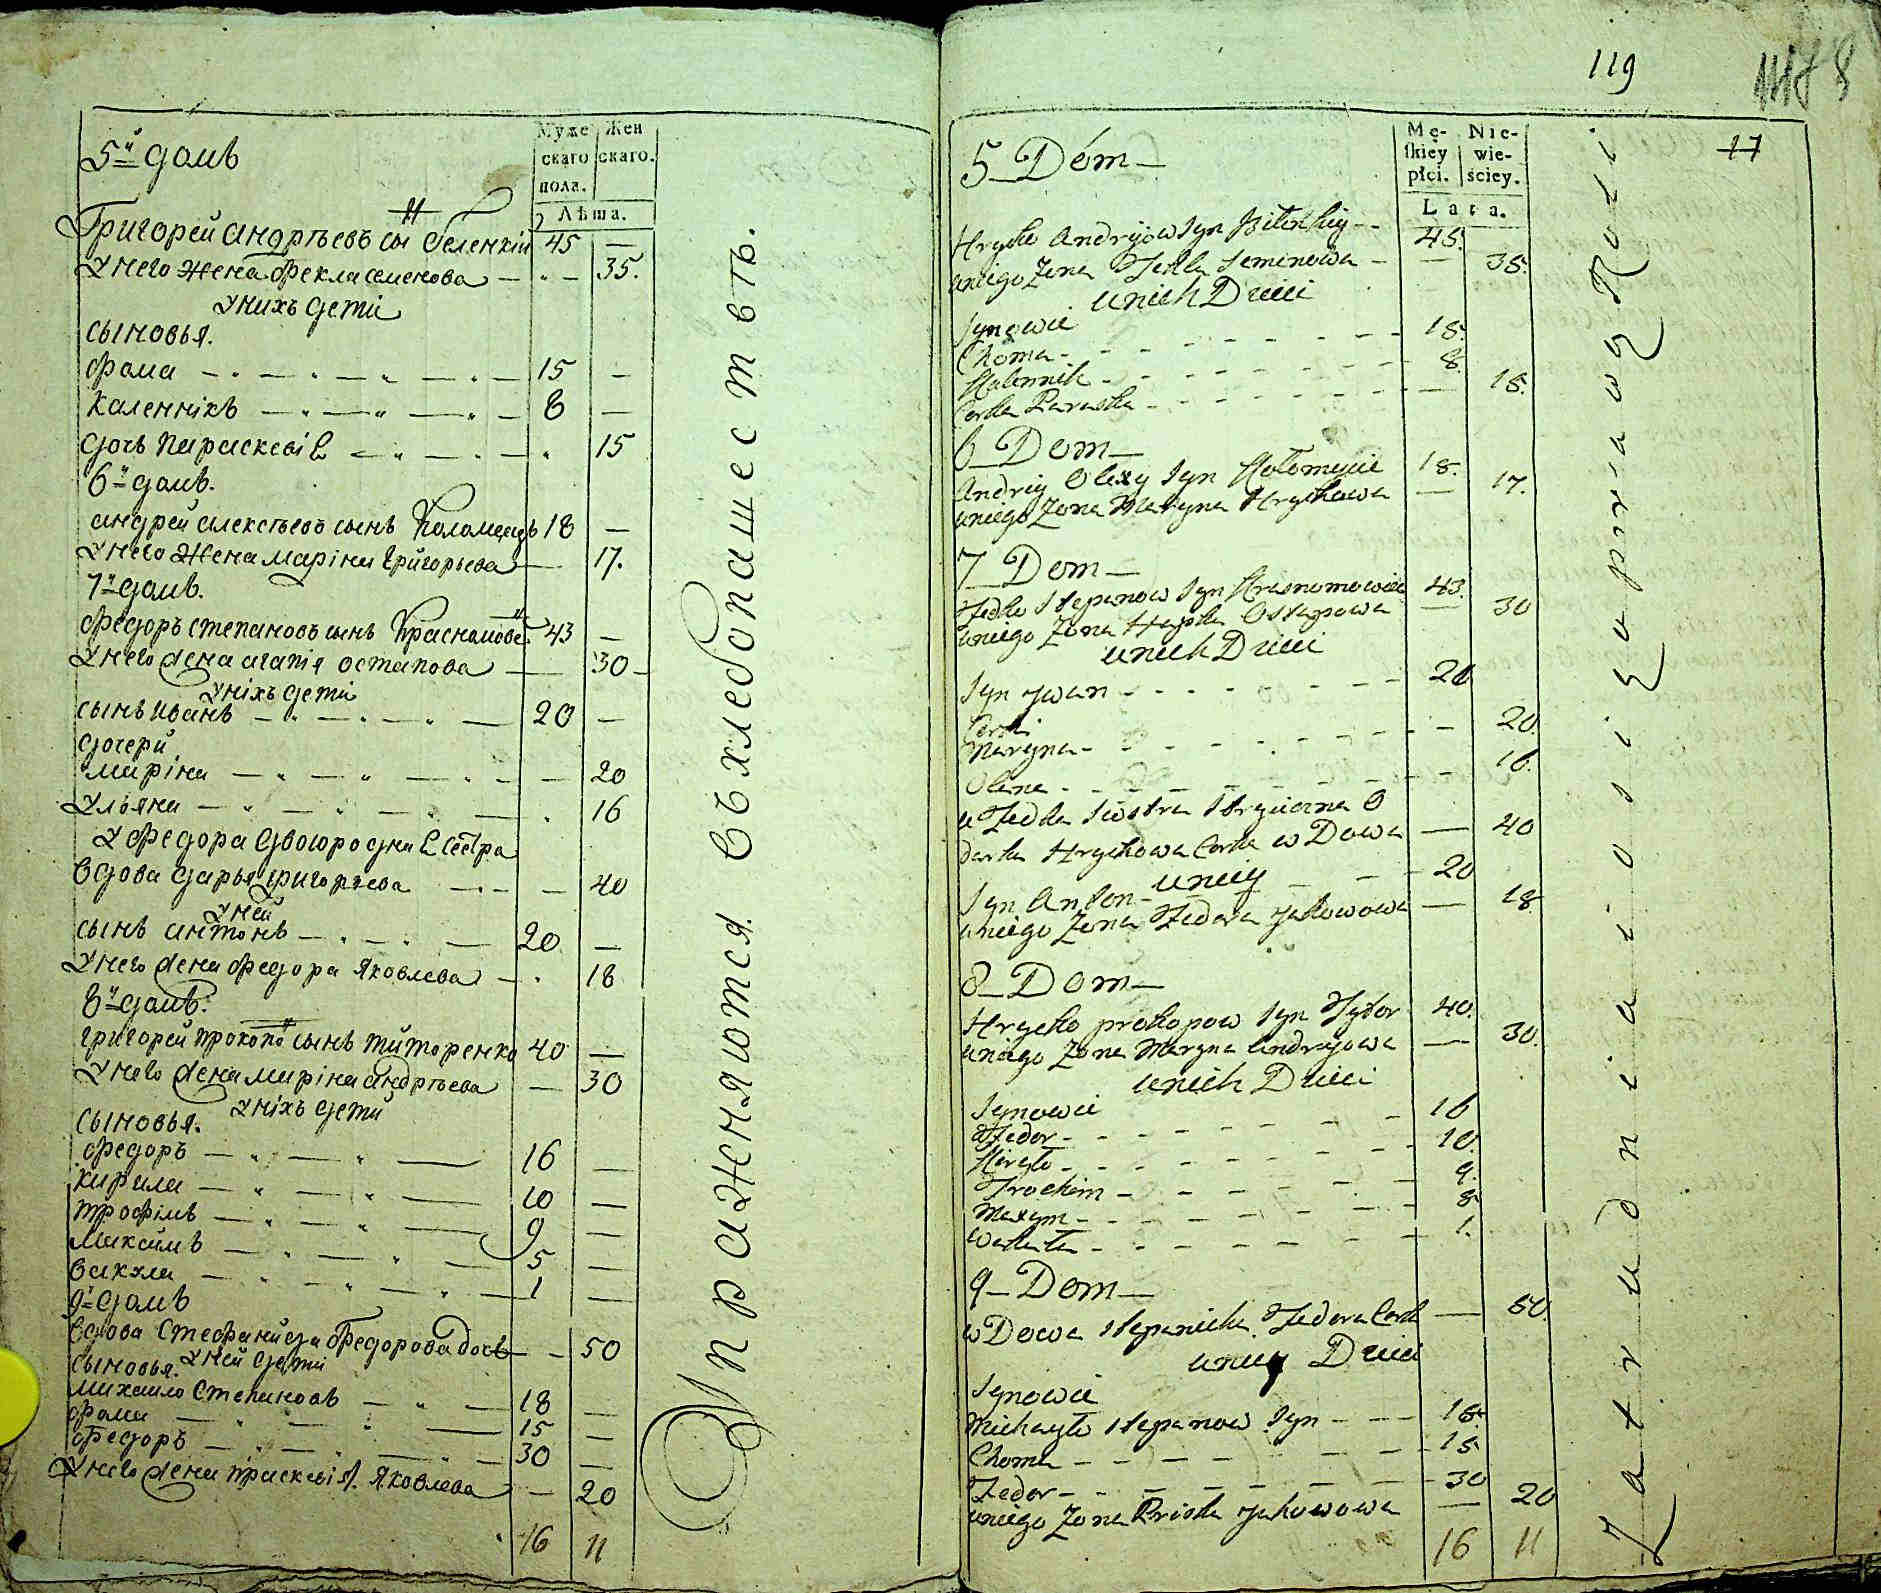 5й домъ
Муже Жен
скаго скаго.
пола.
Лѣта.
Григорей Андрѣевъ сы Беленкій 45 —
У него жена Фекла Семенова — 35.
У нихъ дети
сыновья.
Фома 15 —
Каленнікъ 8 —
дочь Параскевія 15
6й домъ.
Андрей Алексѣевъ сынъ Коломеецъ 18 —
У него жена Маріна Григорьева — 17.
7й домъ.
Федоръ Степановъ сынъ Красномове 43 —
У него жена Агапія Остапова — 30
У ніхъ дети
сынъ Иванъ 20 —
дочери
Маріна 20
Ульяна 16
У Федора двоюродная сестра
вдова Дарья Григорѣева — 40
У ней
сынъ Антонъ 20 —
У него жена Федора Яковлева — 18
8й домъ.
Григорей Прокопо сынъ Титоренко 40 —
У него жена Маріна Андрѣева — 30
У ніхъ дети
сыновья.
Федоръ 16 —
Кирила 10 —
Трофімъ 9 —
Максимъ 5 —
Вакула 1 —
9й домъ
Вдова Стефанида Федорова дочь — 50
У ней дети
сыновья.
Михаило Степановъ 18 —
Фома 15 —
Федоръ 30 —
У него жена Праскевія Яковлева — 20
16 11
Упражняются въ хлебопашествъ.
119
118
17
5 Dóm
Mę- Nie-
skiey wie-
płci. ściey.
Lata.
Hryćko Andryiow Syn Bilenkiy 45.
u niego Żona Fekla Semenowa — 35.
u nich Dzieci
Synowie
Choma 15.
Kalennik 8.
Corka Paraska 15.
6 Dom
Andriy Olexy Syn Kołomyiec 18.
u niego Żona Maryna Hrychowa — 17.
7 Dom
Fedko Stepanow Syn Krasnomowiec 43.
u niego Żona Hapka Ostapowa — 30
u nich Dzieci
Syn Jwan 20
Corki
Maryna 20.
Olena 16.
u Fedka Siostra Stryieczna
Darka Hrychowa Corka wDowa — 40
u niey
Syn Anton 20
u niego Żona Fedora Jakowowa — 18
8 Dom
Hryćko Prokopow Syn Tytor 40.
u niego Żona Maryna Andryiowa — 30.
u nich Dzieci
Synowie
Fedor 16
Kiryło 10.
Trochim 9.
Maxym 5
Wakuła 1.
9 Dom
wDowa Stepanicha Fedora Cork — 50.
u niey Dzieci
Synowie
Michayło Stepanow Syn 18
Choma 15
Fedor 30
u niego Żona Priska Jakowowa — 20
16 11
Zatrudniaiosię oprawą Roli